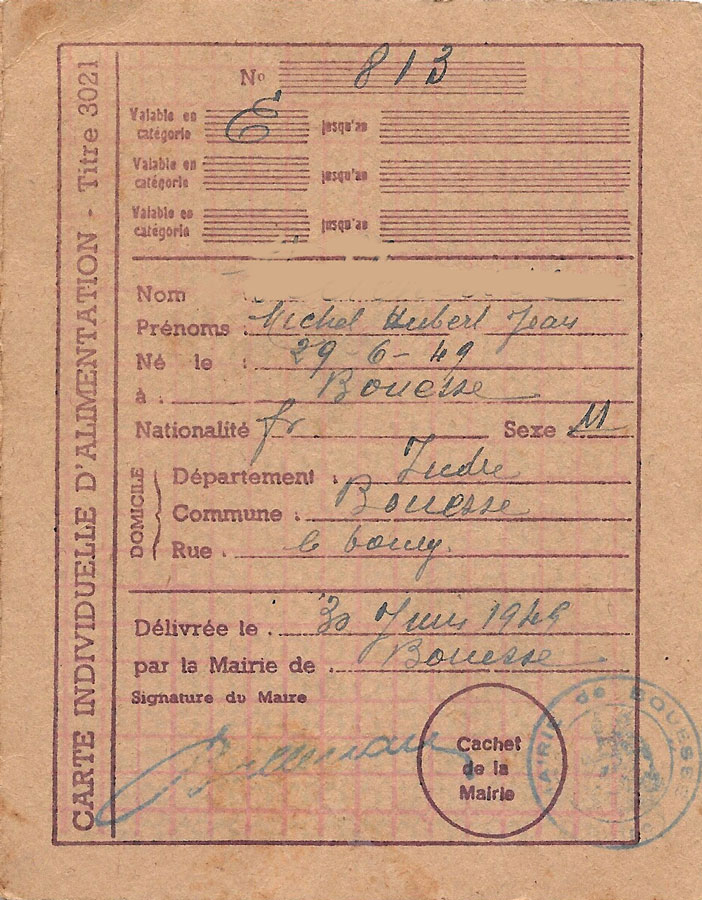 CARTE INDIVIDUELLE D'ALIMENTATION - Titre 3021
No 813
Valable en catégorie E jusqu'au
Valable en catégorie jusqu'au
Valable en catégorie jusqu'au
Nom
Prénoms : Michel Hubert Jean
Né le : 29-6-49
à : Bouesse
Nationalité fr Sexe M
DOMICILE
Département : Indre
Commune : Bouesse
Rue : le bourg.
Délivrée le : 30 Juin 1949
par la Mairie de : Bouesse
Signature du Maire
Cachet
de la
Mairie
MAIRIE de BOUESSE